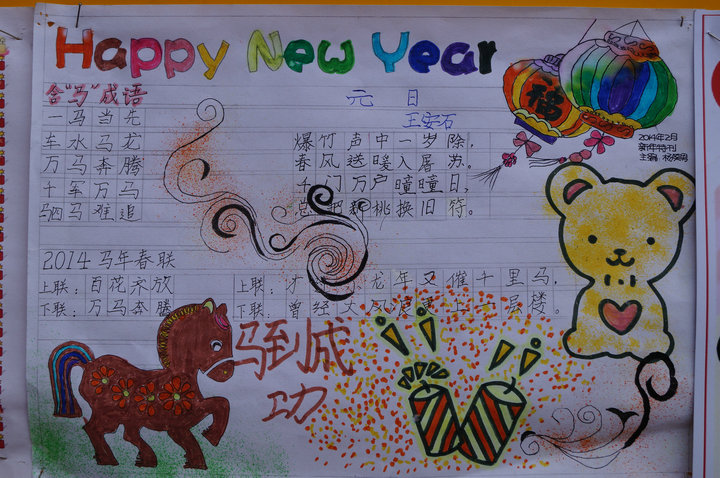 Happy New Year
含"马"成语
一马当先
车水马龙
万马奔腾
千军万马
驷马难追
元日
王安石
爆竹声中一岁除，
春风送暖入屠。
千门万户曈曈日，
总把新桃换旧符。
福
2014年2月
新年特刊
主编
2014马年春联
上联：百花齐放
下联：万马奔腾
上联：才小龙年又催千里马，
下联：曾经大风浪更上一层楼。
马到成
功